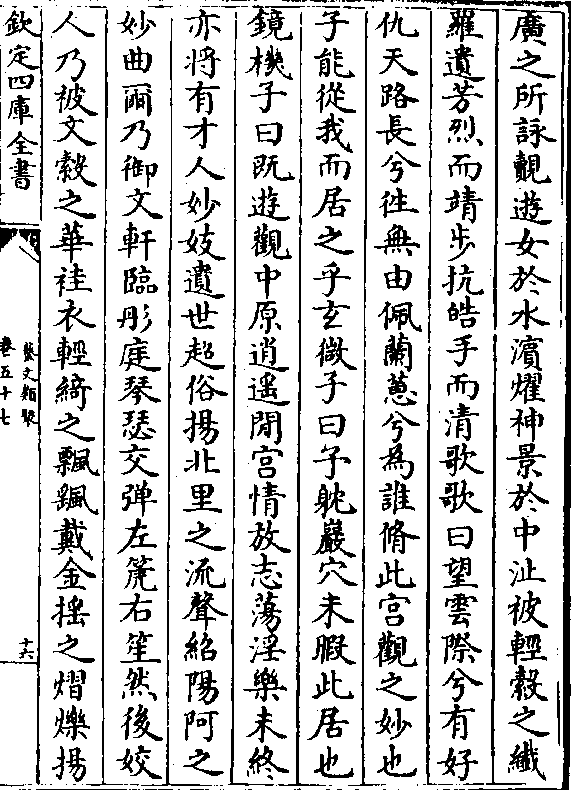 廣之所詠覿遊女於水濵燿神景於中沚被輕縠之纎
羅遺芳烈而靖步抗皓手而清歌歌曰望雲際兮有好
仇天路長兮徃無由佩蘭蕙兮為誰脩此宫觀之妙也
子能從我而居之乎玄微子曰予躭巖穴未暇此居也
鏡機子曰既遊觀中原逍遥閒宫情放志蕩淫樂未終
亦将有才人妙妓遺世超俗揚北里之流聲紹陽阿之
妙曲爾乃御文軒臨彤庭琴瑟交彈左箎右笙然後姣
人乃被文縠之華袿衣輕綺之飄颻戴金揺之熠爍揚
欽定四庫全書
藝文類聚
卷五十七
十六